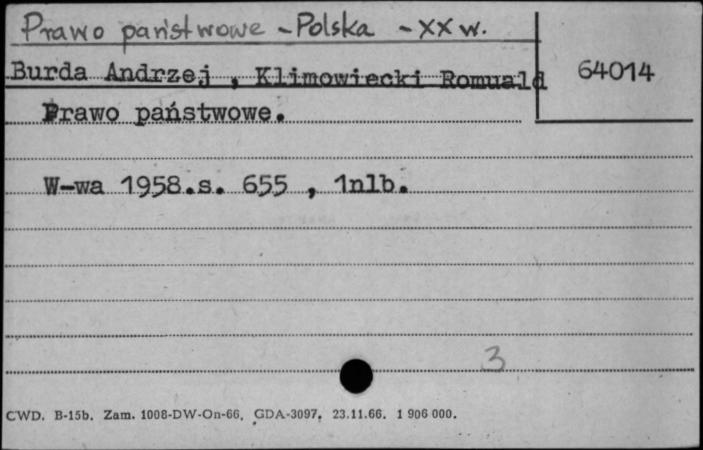 Prawo państwowe - Polska - XX w.
Burda Andrzej , Klimowiecki Romuald
64014
Prawo państwowe.
W-wa 1958.s. 655 , 1nlb.
3
CWD. B-15b. Zam. 1008-DW-On-66. GDA-3097. 23.11.66. 1 906 000.